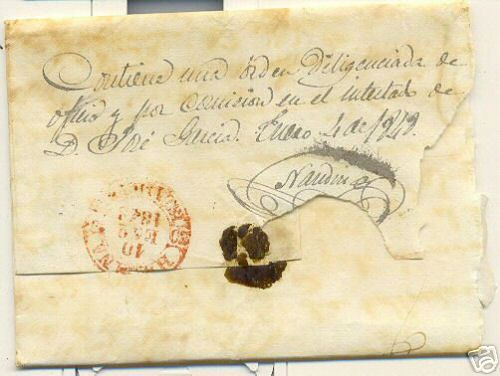 Contiene una órden Diligenciada de
oficio y por comision en el intestado de
D. José Garcia. Enero 4 de 1843.
10
ENE
1843